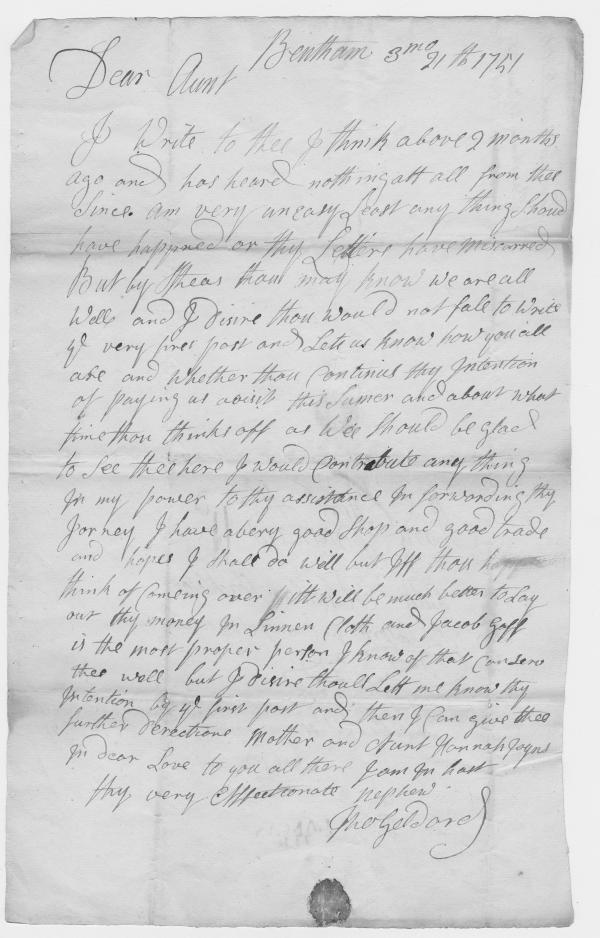 Bentham 3mo 21th 1751
Dear Aunt
I Write to thee I think above 2 months
ago and has heard nothing att all from thee
Since. am very uneasy Least any thing Shoud
have happned or thy Letters have miscarred
But by theas thou may know we are all
Well and I Disire thou would not fale to write
ye very first post and Lett us know how you all
are and whether thou Continius thy Intention
of paying us a visit this Sumer and about what
time thou thinks off as Wee Should be glad
to See thee here I would Contrebute any thing
In my power to thy assistance In forwording thy
Jorney I have a very good Shop and good trade
and hopes I shall do well but Iff thou happen
think of Comeing over itt will be much better to Lay
out thy money In Linnen Cloth and Jacob Goff
is the most proper person I know of that Can serv
thee well but I Disire thoull Lett me know thy
Intention by ye first post and then I Can give thee
further derections Mother and Aunt Hannah Joyns
In dear Love to you all there I am In hast
thy very Affectionate nephew
Tho Geldard